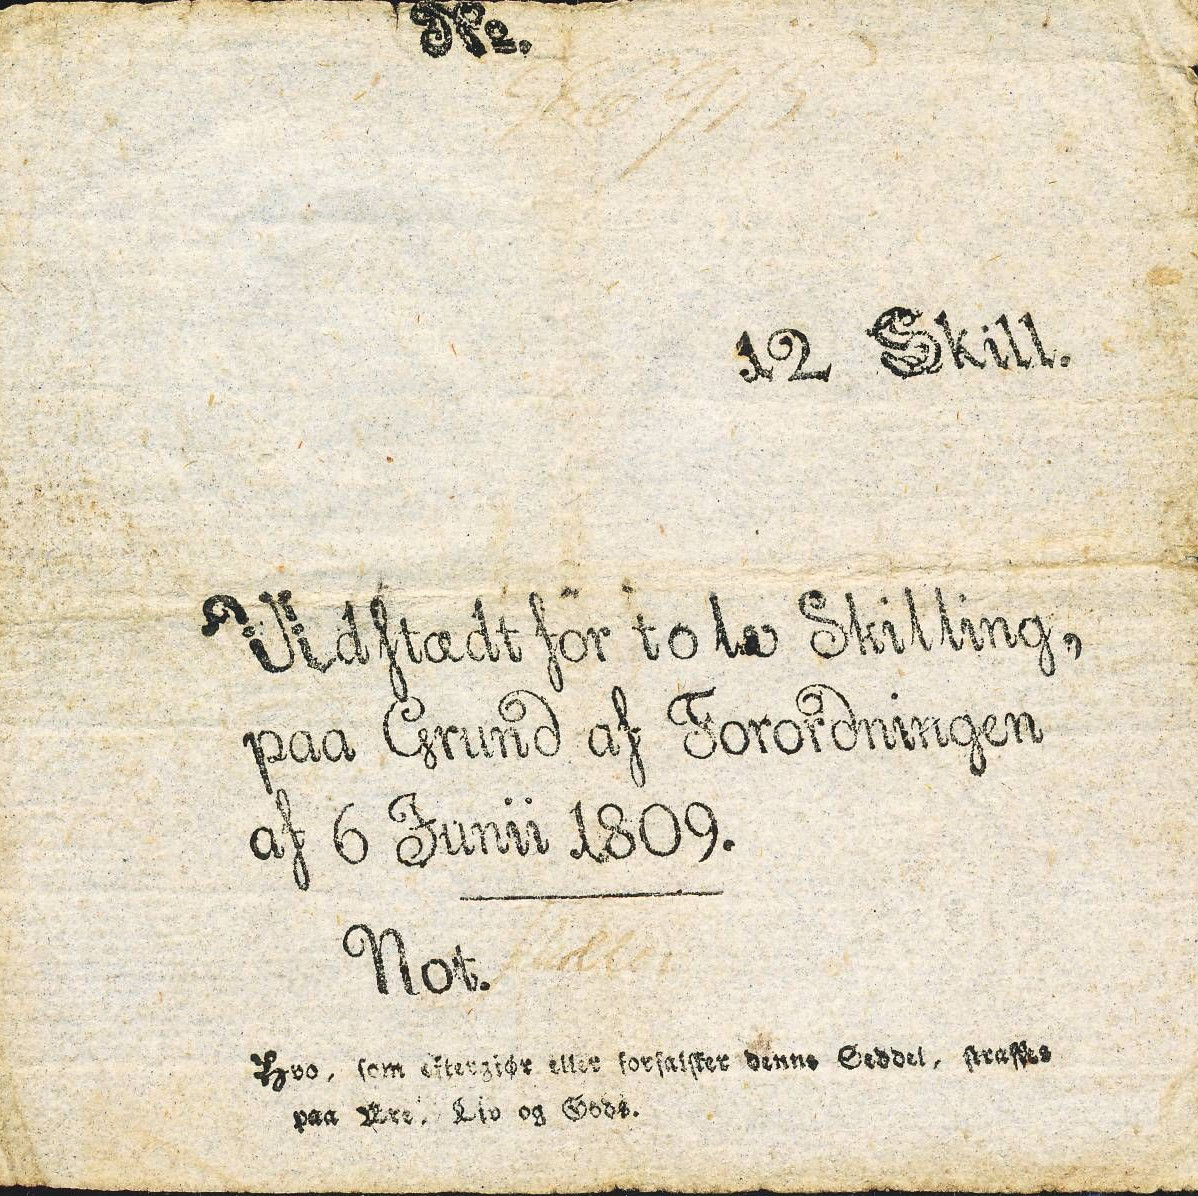 No.
12 Skill.
Udstædt för tolv Skilling,
paa Grund af Forordningen
af 6 Junii 1809.
Not.
Hvo, som eftergiør eller forfalsker denne Seddel, straffes
paa Ære, Liv og Gods.